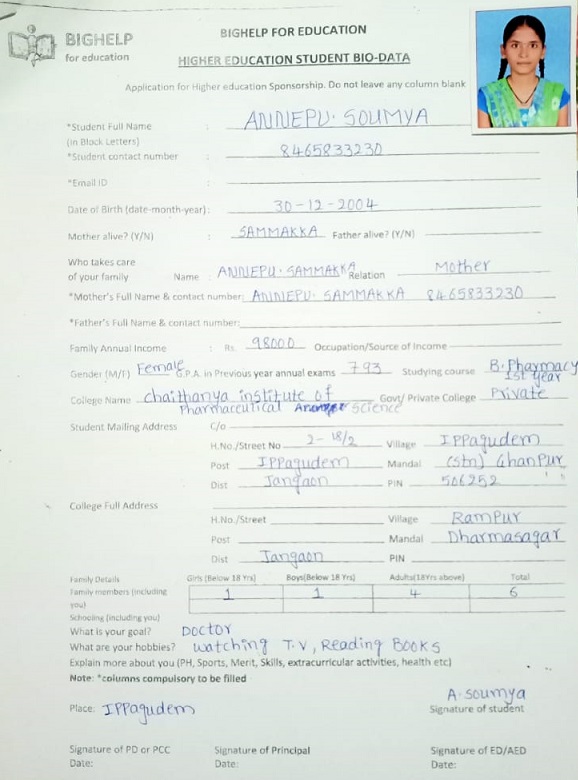 BIGHELP
for education
BIGHELP FOR EDUCATION
HIGHER EDUCATION STUDENT BIO-DATA
Application for Higher education Sponsorship. Do not leave any column blank
*Student Full Name : ANNEPU. SOUMYA
(in Block Letters)
*Student contact number : 8465833230
*Email ID :
Date of Birth (date-month-year) : 30-12-2004
Mother alive? (Y/N) : SAMMAKKA Father alive? (Y/N)
Who takes care
of your family Name : ANNEPU. SAMMAKKA Relation Mother
*Mother's Full Name & contact number: ANNEPU. SAMMAKKA 8465833230
*Father's Full Name & contact number:
Family Annual Income : Rs. 98000 Occupation/Source of Income
Gender (M/F) Female G.P.A. in Previous year annual exams 793 Studying course B. Pharmacy 1st year
College Name chaithanya institute of Govt/ Private College Private
Pharmaceutical Science
Student Mailing Address C/o
H.No./Street No 2-18/2 Village IPPagudem
Post IPPagudem Mandal (Stn) Ghanpur
Dist Jangaon PIN 506252
College Full Address
H.No./Street Village Rampur
Post Mandal Dharmasagar
Dist Jangaon PIN
Family Details Girls (Below 18 Yrs) Boys(Below 18 Yrs) Adults(18Yrs above) Total
Family members (including you) 1 1 4 6
Schooling (including you)
What is your goal? DOCTOR
What are your hobbies? watching T.V, Reading Books
Explain more about you (PH, Sports, Merit, Skills, extracurricular activities, health etc)
Note: *columns compulsory to be filled
Place: IPPagudem
A. Soumya
Signature of student
Signature of PD or PCC Signature of Principal Signature of ED/AED
Date: Date: Date: